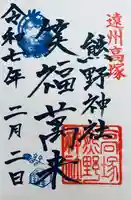 遠州高塚
熊野神社
笑福萬来
令和七年 二月二日
高塚熊野